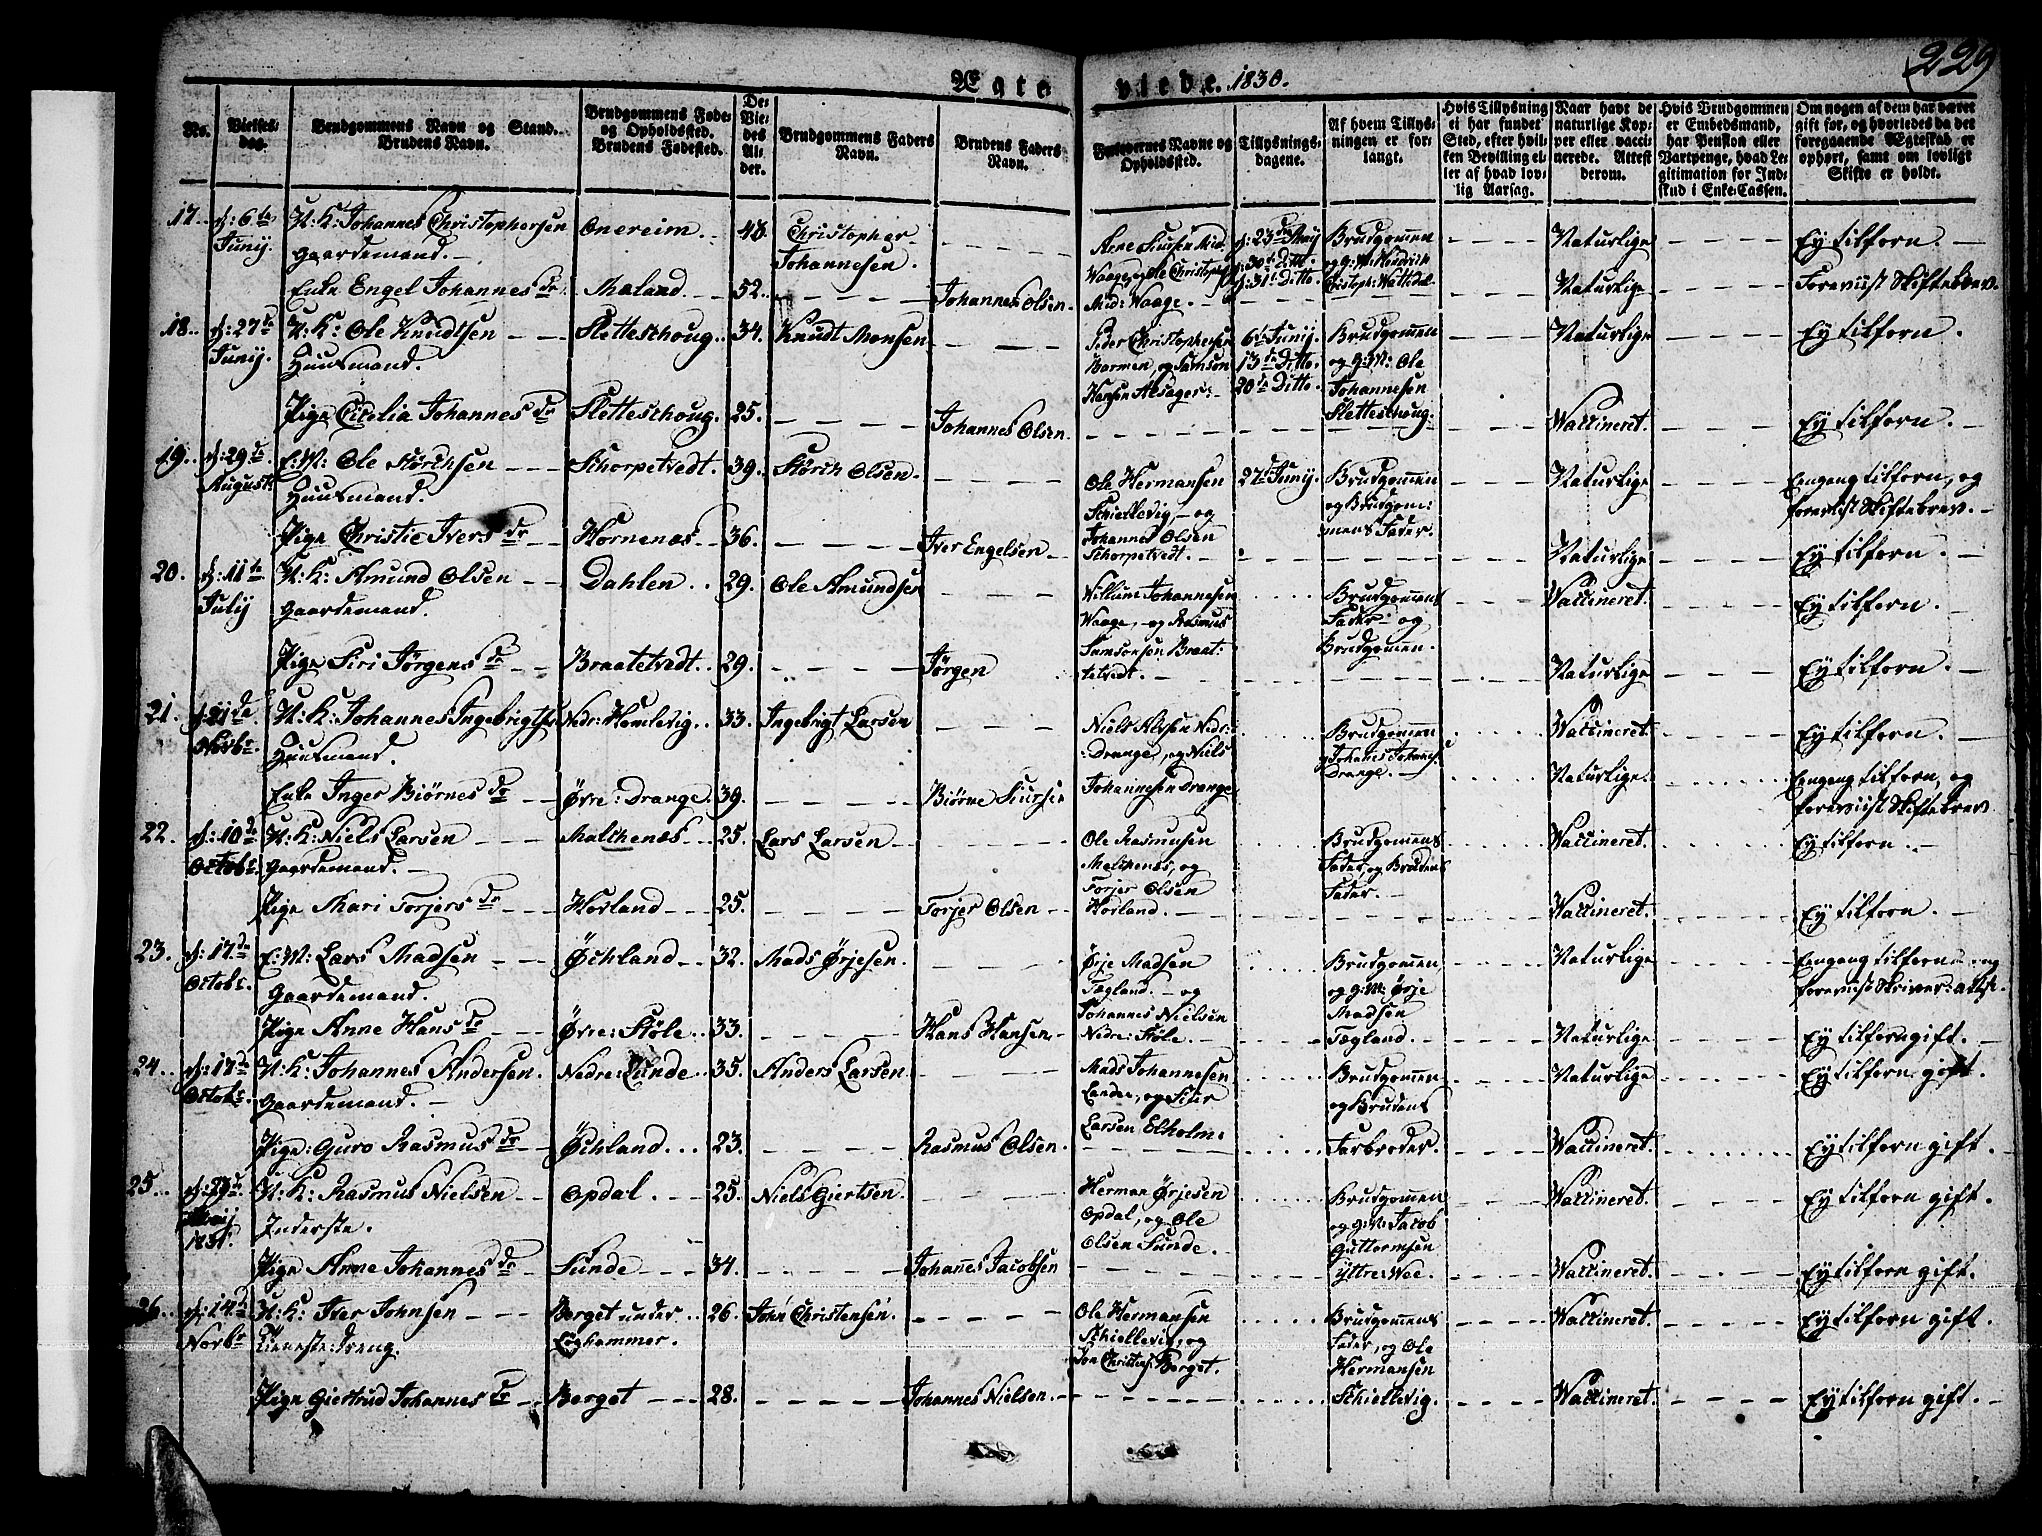 229
Ægteviede. 1830.
No.
Vielses-dag.
Brudgommens Navn og Stand.
Brudens Navn.
Brudgommens Føde- og Opholdssted.
Brudens Fødested.
De Viedes Alder.
Brudgommens Faders Navn.
Brudens Faders Navn.
Forlovernes Navne og Opholdssted.
Tillysnings-dagene.
Af hvem Tillysningen er forlangt.
Hvis Tillysning ei har fundet Sted, efter hvilken Bevilling eller af hvad lovlig Aarsag.
Naar havt de naturlige Kopper eller vaccinerede. Attest derom.
Hvis Brudgommen er Embedsmand, har Pension eller Vartpenge, hvad Legitimation for Indskud i Enke-Cassen.
Om nogen af dem har været gift før, og hvorledes da det foregaaende Ægteskab er ophørt, samt om lovligt Skifte er holdt.
17. d: 6te Junij U: K: Johannes Christophersen Gaardemand. Onereim. 48. Christopher Johannesen.
d: 23de Maij d: 30te Ditto. d: 31te Ditto. Brudgommen Naturlige Ey tilforn.
Enke Engel Johannes dr Maland 52. Johannes Olsen. Mid: Waage. Naturlige Foreviist Skiftebrev.
18. d: 27de Junij. U: K: Ole Knudtsen Huusmand. Sletteschoug. 34. Knudt Monsen
Peder Christophersen Barmen, og Samson Hansen Alsager. 6te Junij. 13de Ditto. 20de Ditto. Brudgommen og G: M: Ole Johannesen Sletteschoug. Naturlige Ey tilforn.
Pige Cicelia Johannes dr Sletteschoug. 25. Johannes Olsen. Vaccineret. Ey tilforn.
19. d: 29de August: E: M: Ole Størchsen Huusmand. Schorpetvedt. 39. Størch Olsen.
Ole Hermansen Schiellevig, og Johannes Olsen Schorpetvedt. 27de Junij. Brudgommen og Brudgommens Fader. Naturlige Eengang tilforn, og foreviist Skiftebrev.
Pige Christie Ivers dr Hornenæs 36. Iver Engelsen Naturlige Ey tilforn.
20. d: 11te July U: K: Amund Olsen Gaardemand. Dahlen. 29. Ole Amundsen
Villum Johannesen Waage, og Rasmus Samsonsen Braatetvedt. Brudgommens Fader og Brudgommen. Vaccineret. Ey tilforn.
Pige Siri Jørgens dr Braatetvedt. 29. Jørgen Naturlige Ey tilforn.
21. d: 21de Novbr. U: K: Johannes Ingebrigtsen Huusmand. Nedre: Hamlevig. 33. Ingebrigt Larsen
Drange, og Niels Johannesen Drange Brudgommen Drange. Vaccineret. Ey tilforn.
Enke Inger Biørnes dr Øvre: Drange. 39. Biørne Siursen Naturlige. Eengang tilforn, og foreviist Skiftebrev
22. d: 10de Octobr. U: K: Niels Larsen Gaardemand. Malchenæs 25. Lars Larsen
Ole Rasmusen Malchenæs, og Torjer Olsen Hovland. Brudgommens Fader, og Brudens Fader. Vaccineret. Ey tilforn.
Pige Mari Torjers dr Hovland 25. Torjer Olsen Vaccineret. Ey tilforn.
23. d: 17de Octobr. E: M: Lars Madsen Gaardemand. Øchland 32. Mads Ørjesen.
Ørje Madsen Tægland. og Johannes Nielsen Nedre: Støle. Brudgommen, og G: M: Ørje Madsen Tægland. Naturlige Eengang tilforn og foreviist
Pige Anne Hans dr Øvre: Støle 33. Hans Hansen Naturlige Ey tilforn gift.
24. d: 17de Octobr. U: K: Johannes Andersen Gaardemand. Nedre: Lunde 35. Anders Larsen
Mads Johannesen Lande, og Siur Larsen Elholm. Brudgommen og Brudens Farbroder. Naturlige Ey tilforn gift.
Pige: Guro Rasmus dr Øchland. 23. Rasmus Olsen. Vaccineret. Ey tilforn gift.
25. Maij 1831. U: K: Rasmus Nielsen Inderste. Opdal. 25. Niels Giertsen.
Herman Ørjesen Opdal, og Ole Olsen Sunde. Brudgommen og G: M: Jacob Guttormsen Yttre: Wee. Vaccineret. Ey tilforn gift.
Pige Anne Johannes dr Sunde 34. Johannes Jacobsen Vaccineret. Ey tilforn gift.
26. d: 14de Novbr. U: K: Iver Johnsen Tieneste: Dreng. Berget under Eeghammer. 26. John Christensen.
Ole Hermansen Schiellevig, og Jon Christens: Berget. Brudgommens Fader, og Ole Hermansen Schiellevig. Vaccineret. Ey tilforn gift.
Pige Giertrud Johannes dr Berget 28. Johannes Nielsen. Vaccineret. Ey tilforn gift.